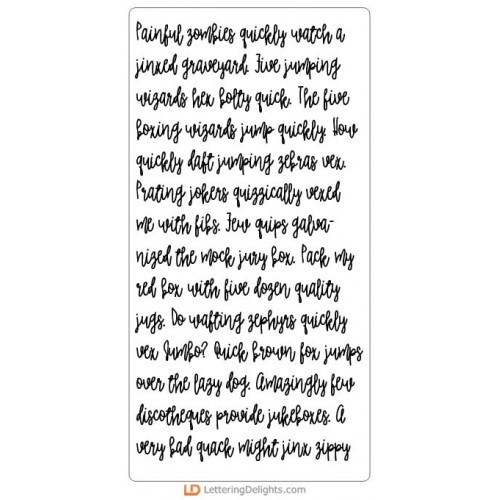 Painful zombies quickly watch a
jinxed graveyard. Five jumping
wizards hex bolty quick. The five
boxing wizards jump quickly. How
quickly daft jumping zebras vex.
Prating jokers quizzically vexed
me with fibs. Few quips galva-
nized the mock jury box. Pack my
red box with five dozen quality
jugs. Do wafting zephyrs quickly
vex Jumbo? Quick brown fox jumps
over the lazy dog. Amazingly few
discotheques provide jukeboxes. A
very bad quack might jinx zippy
LD LetteringDelights.com